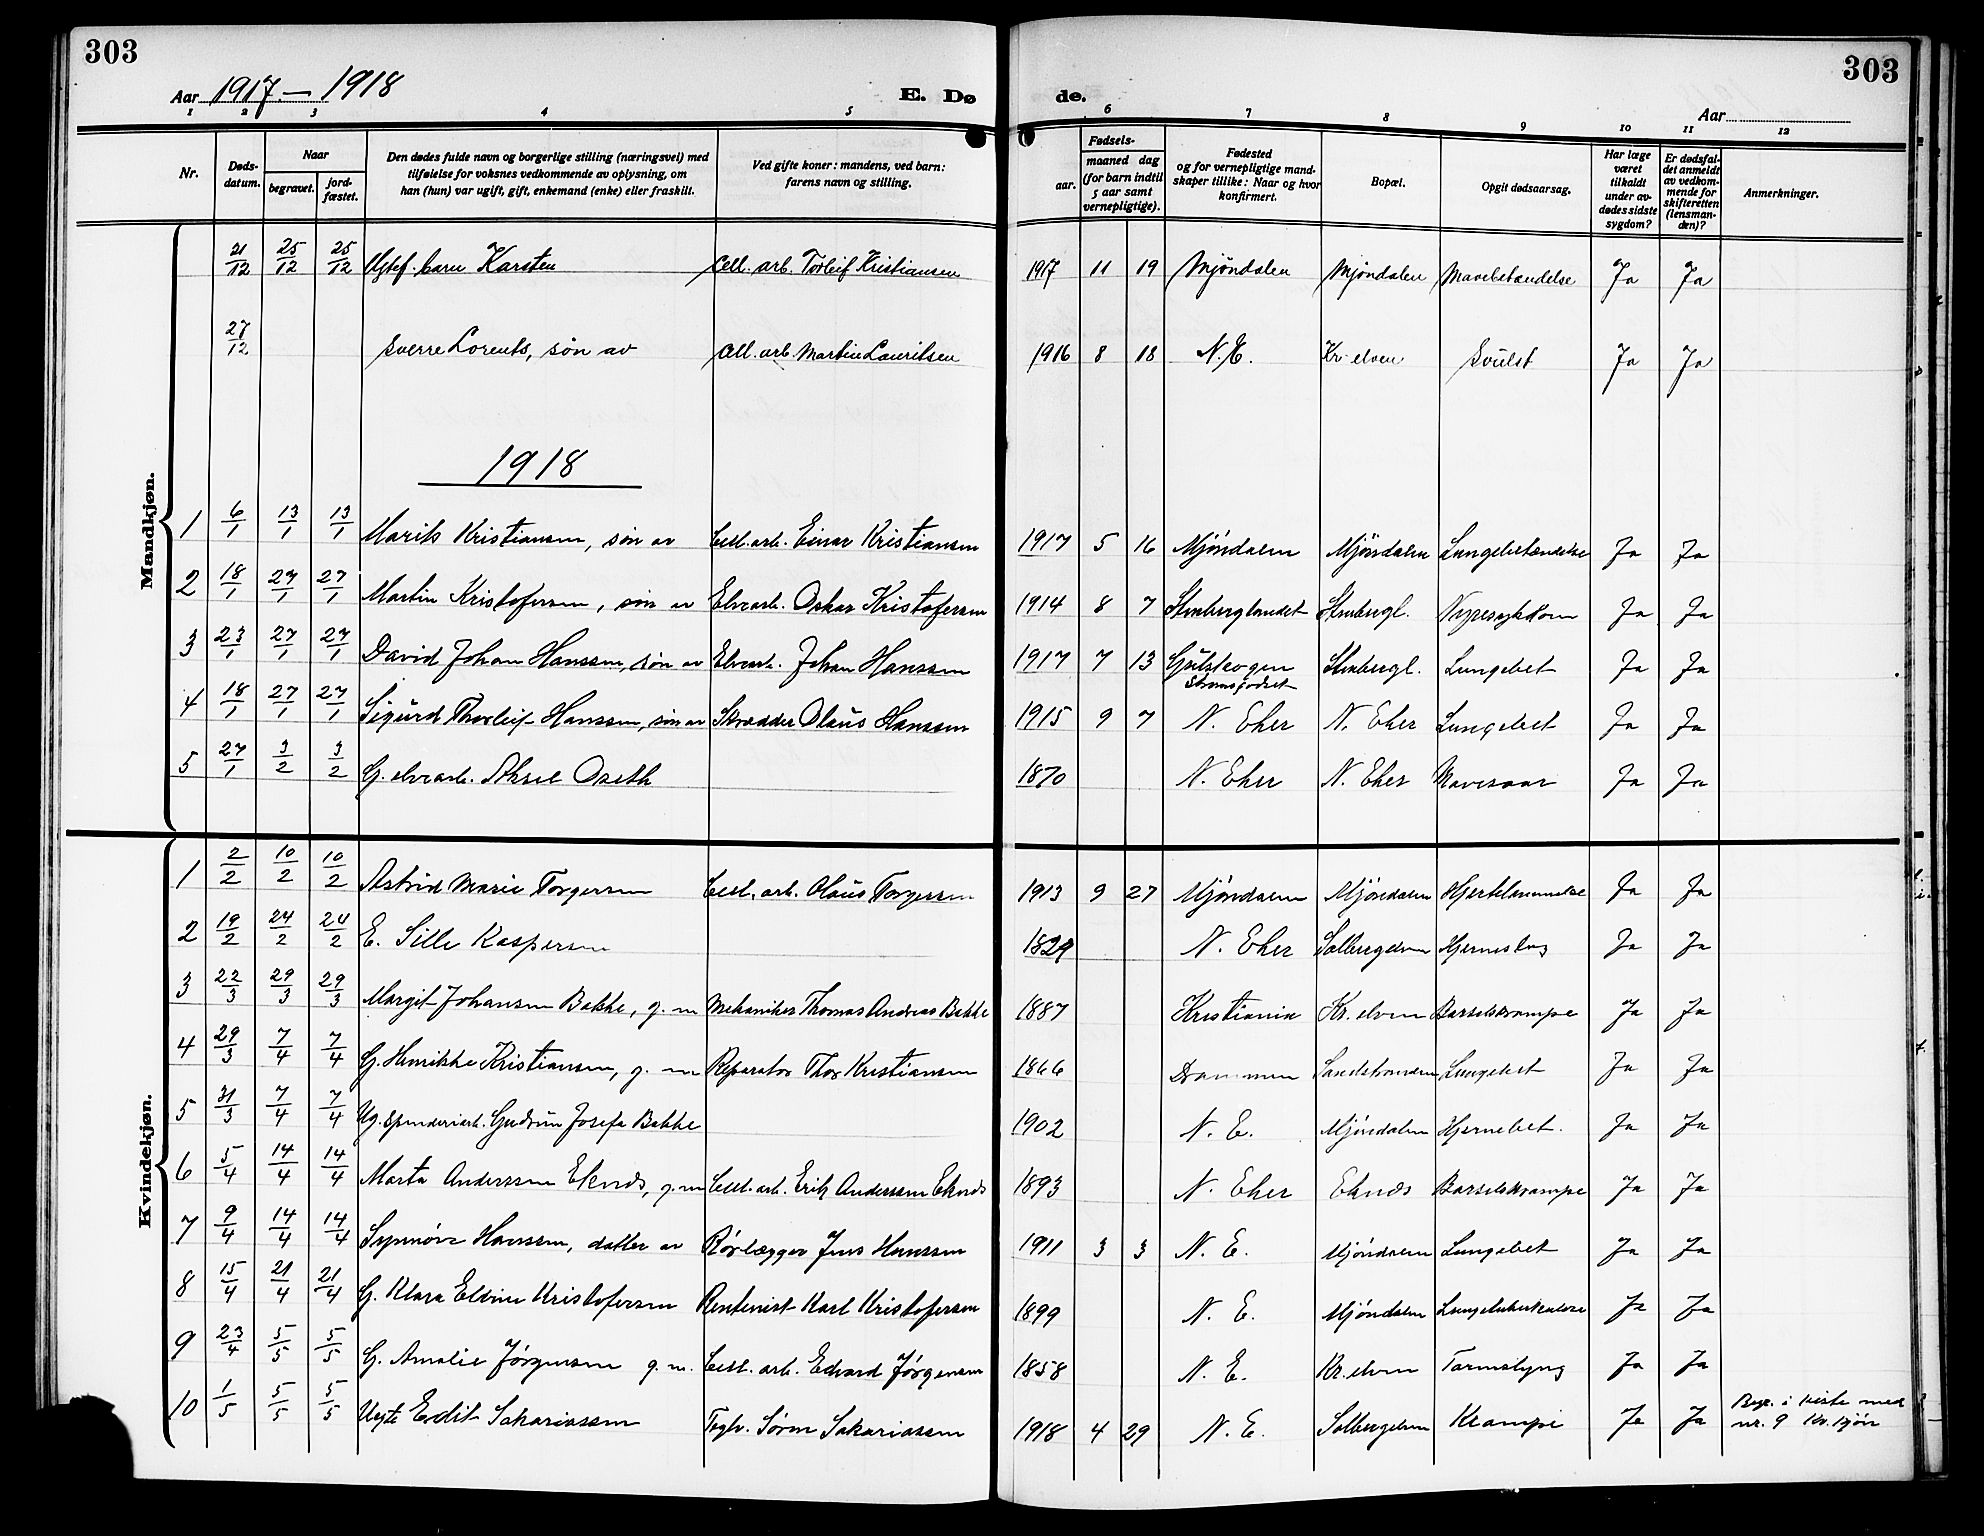 303
303
Aar 1917 – 1918
E. Dø
de.
Aar
1 2 3 4 5 6 7 8 9 10 11 12
Nr.
Døds-
datum.
Naar
begravet.
jord-
fæstet.
Den dødes fulde navn og borgerlige stilling (næringsvei) med
tilføielse for voksnes vedkommende av oplysning, om
han (hun) var ugift, gift, enkemand (enke) eller fraskilt.
Ved gifte koner: mandens, ved barn:
farens navn og stilling.
Fødsels-
aar.
maaned dag
(for barn indtil
5 aar samt
vernepligtige).
Fødested
og for vernepligtige mand-
skaper tillike: Naar og hvor
konfirmert.
Bopæl.
Opgit dødsaarsag.
Har læge
været
tilkaldt
under av-
dødes sidste
sygdom?
Er dødsfal-
det anmeldt
av vedkom-
mende for
skifteretten
(lensman-
den)?
Anmerkninger.
Mandkjøn.
21/12 25/12 25/12 Ugtef. barn Karsten Cell. arb. Torleif Kristiansen 1917 11 19 Mjöndalen Mjöndalen Mavebetændelse Ja Ja
27/12 Sverre Lorents, søn av Cell. arb. Martin Lauritsen 1916 8 18 N. E. Kr. elven Svulst Ja Ja
1918
1 6/1 13/1 13/1 Marils Kristiansen, søn av Cell. arb. Einar Kristiansen 1917 5 16 Mjöndalen Mjöndalen Lungebetændelse Ja Ja
2 18/1 27/1 27/1 Martin Kristofersen, søn av Elvearb. Oskar Kristofersen 1914 8 7 Stenberglandet Stenbergl. Nyresykdom Ja Ja
3 23/1 27/1 27/1 David Johan Hanssen, søn av Elvearb. Johan Hanssen 1917 7 13 Gulskogen Stenbergl. Lungebet Ja Ja
Strømsgodset
4 18/1 27/1 27/1 Sigurd Thorleif Hanssen, søn av Skrædder Olaus Hanssen 1915 9 7 N. Eker N. Eker Lungebet Ja Ja
5 27/1 3/2 3/2 G. elvearb. Aksel Oseth 1870 N. Eker N. Eker Mavesaar Ja Ja
Kvindekjøn.
1 2/2 10/2 10/2 Astrid Marie Torgersen Cell. arb. Olaus Torgersen 1913 9 27 Mjöndalen Mjöndalen Hjertelammelse Ja Ja
2 19/2 24/2 24/2 E. Sille Kaspersen 1829 N. Eker Solbergelven Hjerneslag Ja Ja
3 22/3 29/3 29/3 Margit Johansen Bakke, g. m Mekaniker Thomas Andreas Bakke 1887 Kristiania Kr. elven Barselskrampe Ja Ja
4 29/3 7/4 7/4 G. Henrikke Kristiansen, g. m Reparatør Thor Kristiansen 1866 Drammen Sandstranden Lungebet Ja Ja
5 31/3 7/4 7/4 Ug. spinderiarb. Gudrun Josefa Bakke 1902 N. E. Mjöndalen Hjernebet. Ja Ja
6 5/4 14/4 14/4 Marta Anderssen Eknes, g. m Cell. arb. Erik Anderssen Eknes 1893 N. Eker Eknes Barselskrampe Ja Ja
7 9/4 14/4 14/4 Synnöve Hanssen, datter av Rörlægger Jens Hanssen 1911 3 3 N. E. Mjöndalen Lungebet Ja Ja
8 15/4 21/4 21/4 G. Klara Elvine Kristofersen Rentenist Karl Kristofersen 1899 N. E. Mjöndalen Lungetuberkulose Ja Ja
9 23/4 5/5 5/5 G. Amalie Jörgensen g. m. Cell. arb. Edvard Jörgensen 1858 N. E. Kr. elven Tarmslyng Ja Ja
10 1/5 5/5 5/5 Uegte Edit Sakariassen Søren Sakariassen 1918 4 29 N. E. Solbergelven Krampe Ja Ja Begr. i kiste med
nr. 9 Kv.kjön